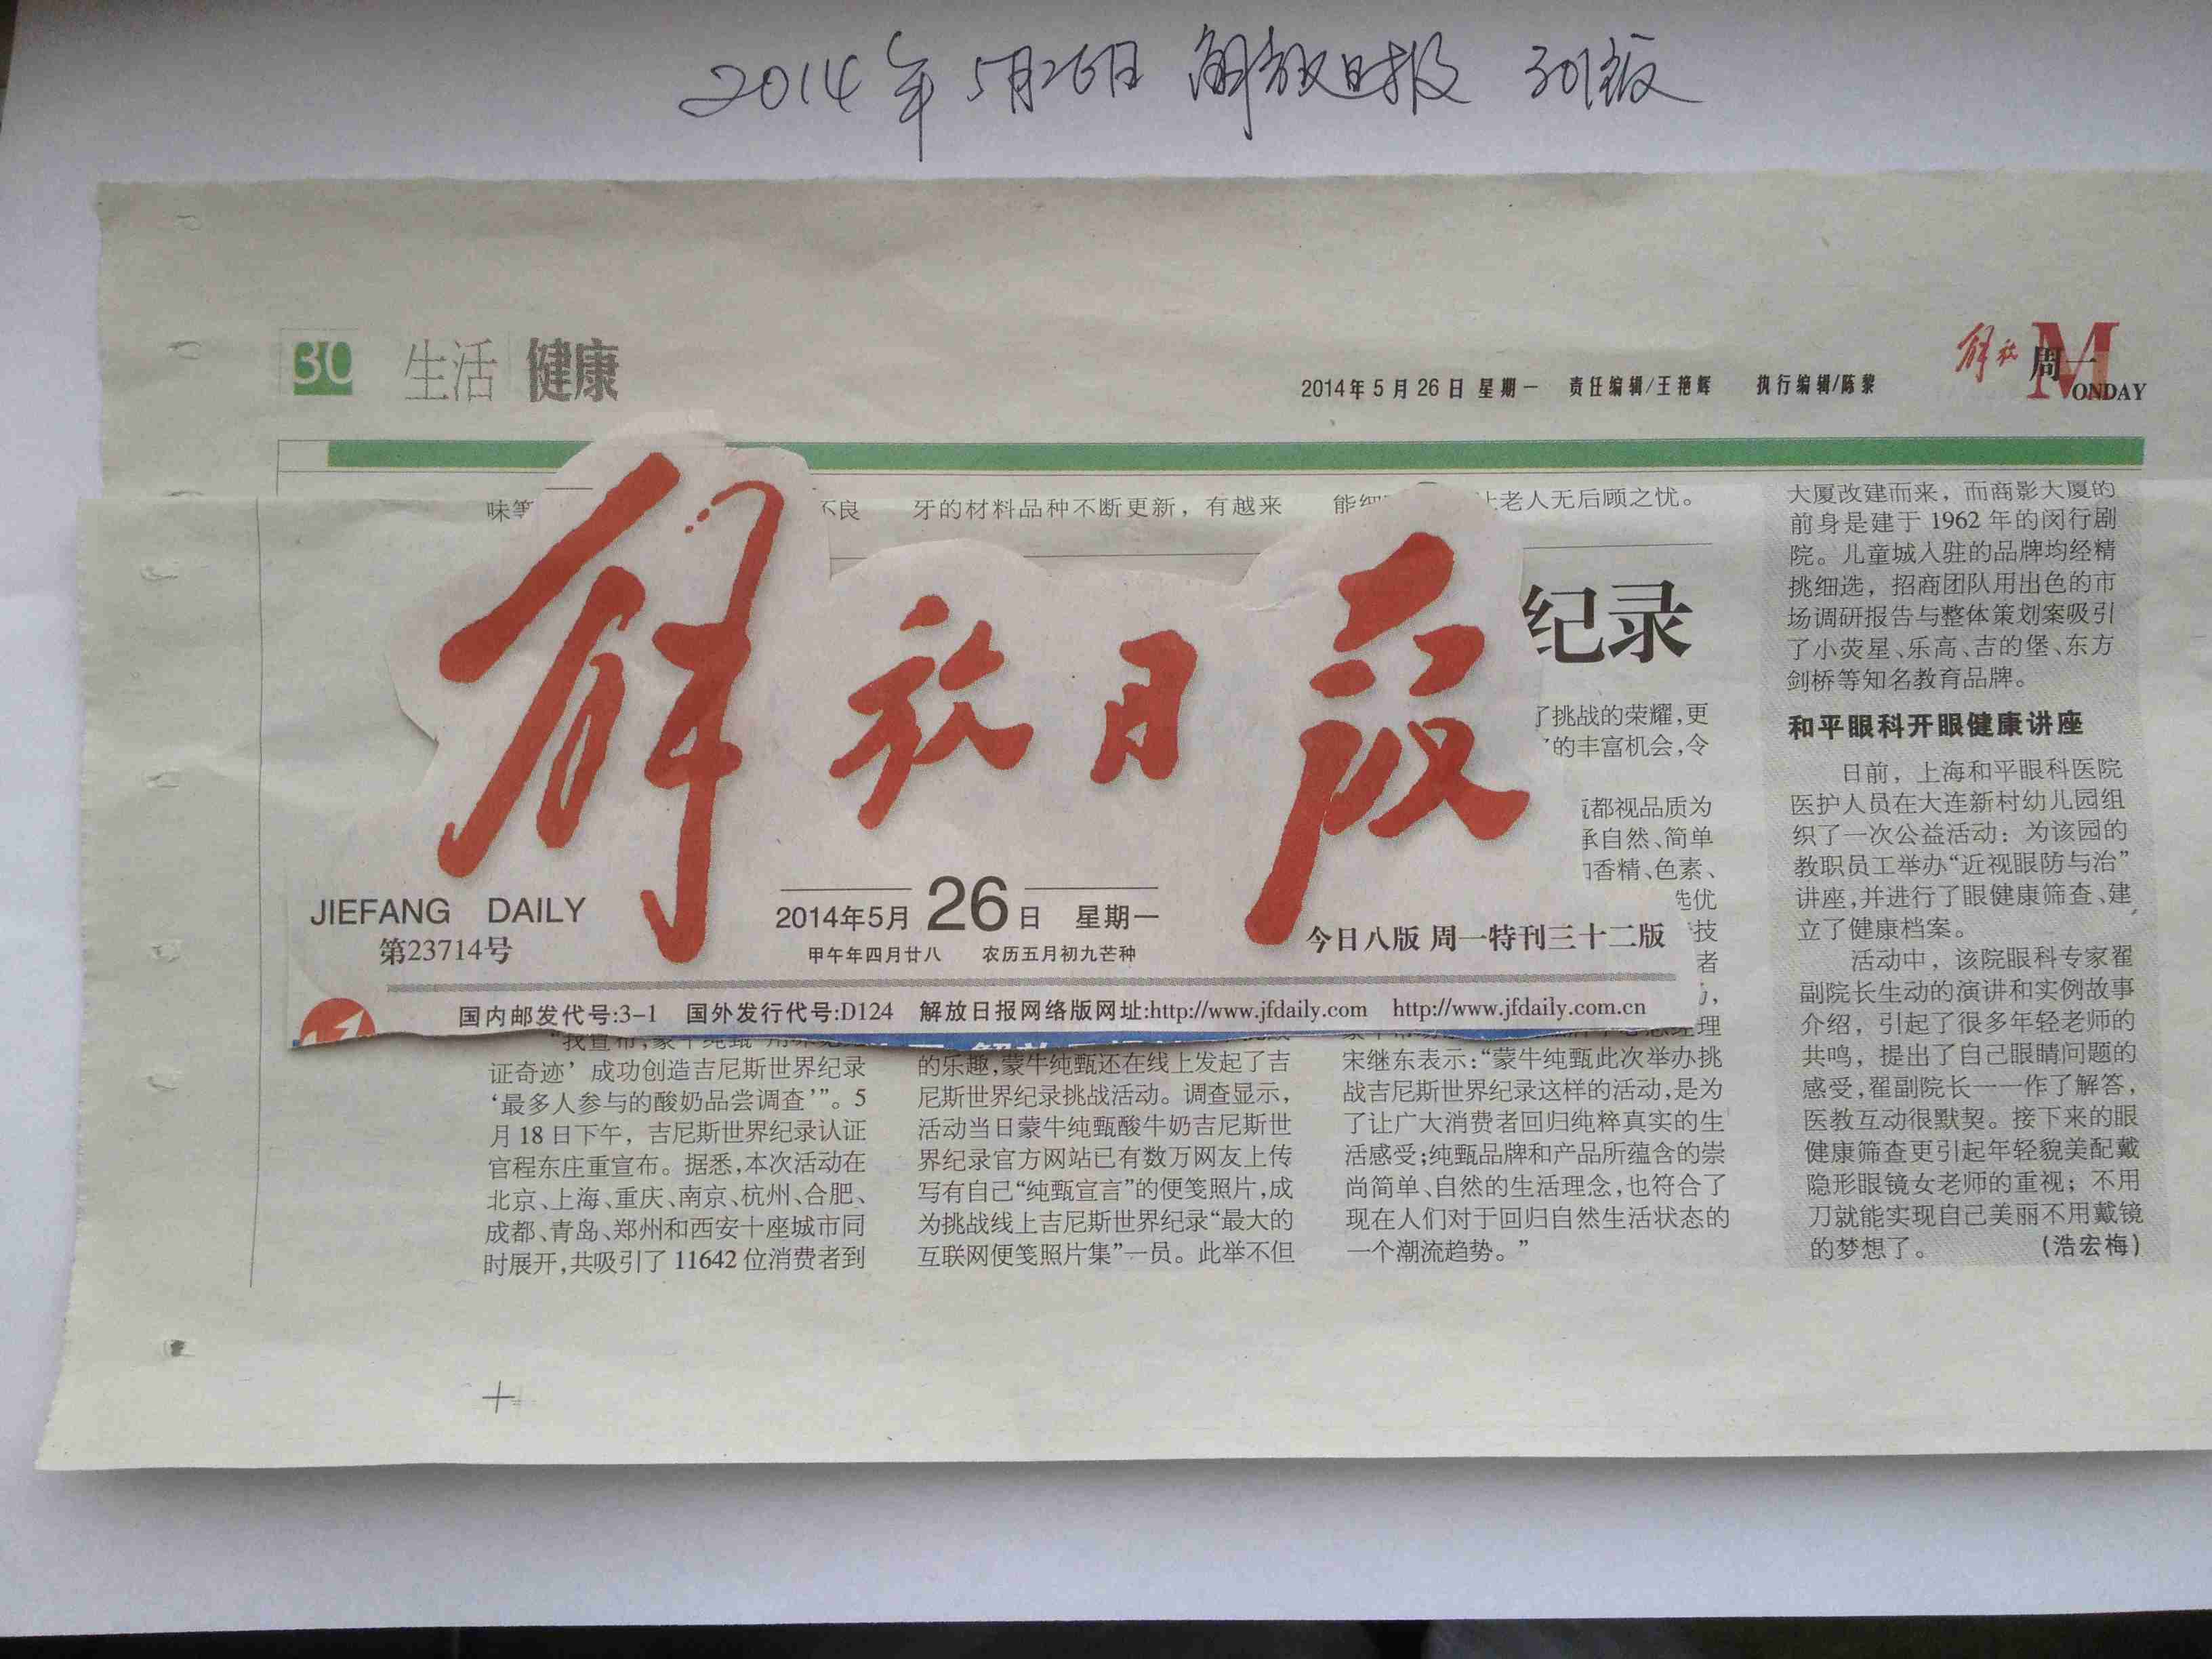 2014年5月26日 解放日报 30版
30 生活 健康
2014年5月26日 星期一 责任编辑/王艳辉 执行编辑/陈黎
解放 周一 MONDAY
味等
不良
牙的材料品种不断更新，有越来
让老人无后顾之忧。
纪录
了挑战的荣耀,更
的丰富机会,令
都视品质为
承自然、简单
香精、色素、
选优
技
者
解放日报
JIEFANG DAILY
第23714号
2014年5月26日 星期一
甲午年四月廿八 农历五月初九芒种
今日八版 周一特刊三十二版
国内邮发代号:3-1 国外发行代号:D124 解放日报网络版网址:http://www.jfdaily.com http://www.jfdaily.com.cn
证奇迹’成功创造吉尼斯世界纪录
‘最多人参与的酸奶品尝调查’”。5
月18日下午，吉尼斯世界纪录认证
官程东庄重宣布。据悉,本次活动在
北京、上海、重庆、南京、杭州、合肥、
成都、青岛、郑州和西安十座城市同
时展开,共吸引了11642位消费者到
的乐趣,蒙牛纯甄还在线上发起了吉
尼斯世界纪录挑战活动。调查显示，
活动当日蒙牛纯甄酸牛奶吉尼斯世
界纪录官方网站已有数万网友上传
写有自己“纯甄宣言”的便笺照片,成
为挑战线上吉尼斯世界纪录“最大的
互联网便笺照片集”一员。此举不但
宋继东表示:“蒙牛纯甄此次举办挑
战吉尼斯世界纪录这样的活动,是为
了让广大消费者回归纯粹真实的生
活感受;纯甄品牌和产品所蕴含的崇
尚简单、自然的生活理念,也符合了
现在人们对于回归自然生活状态的
一个潮流趋势。”
大厦改建而来，而商影大厦的
前身是建于1962年的闵行剧
院。儿童城入驻的品牌均经精
挑细选，招商团队用出色的市
场调研报告与整体策划案吸引
了小荧星、乐高、吉的堡、东方
剑桥等知名教育品牌。
和平眼科开眼健康讲座
日前，上海和平眼科医院
医护人员在大连新村幼儿园组
织了一次公益活动：为该园的
教职员工举办“近视眼防与治”
讲座,并进行了眼健康筛查、建
立了健康档案。
活动中，该院眼科专家翟
副院长生动的演讲和实例故事
介绍，引起了很多年轻老师的
共鸣，提出了自己眼睛问题的
感受,翟副院长一一作了解答，
医教互动很默契。接下来的眼
健康筛查更引起年轻貌美配戴
隐形眼镜女老师的重视；不用
刀就能实现自己美丽不用戴镜
的梦想了。 (浩宏梅)